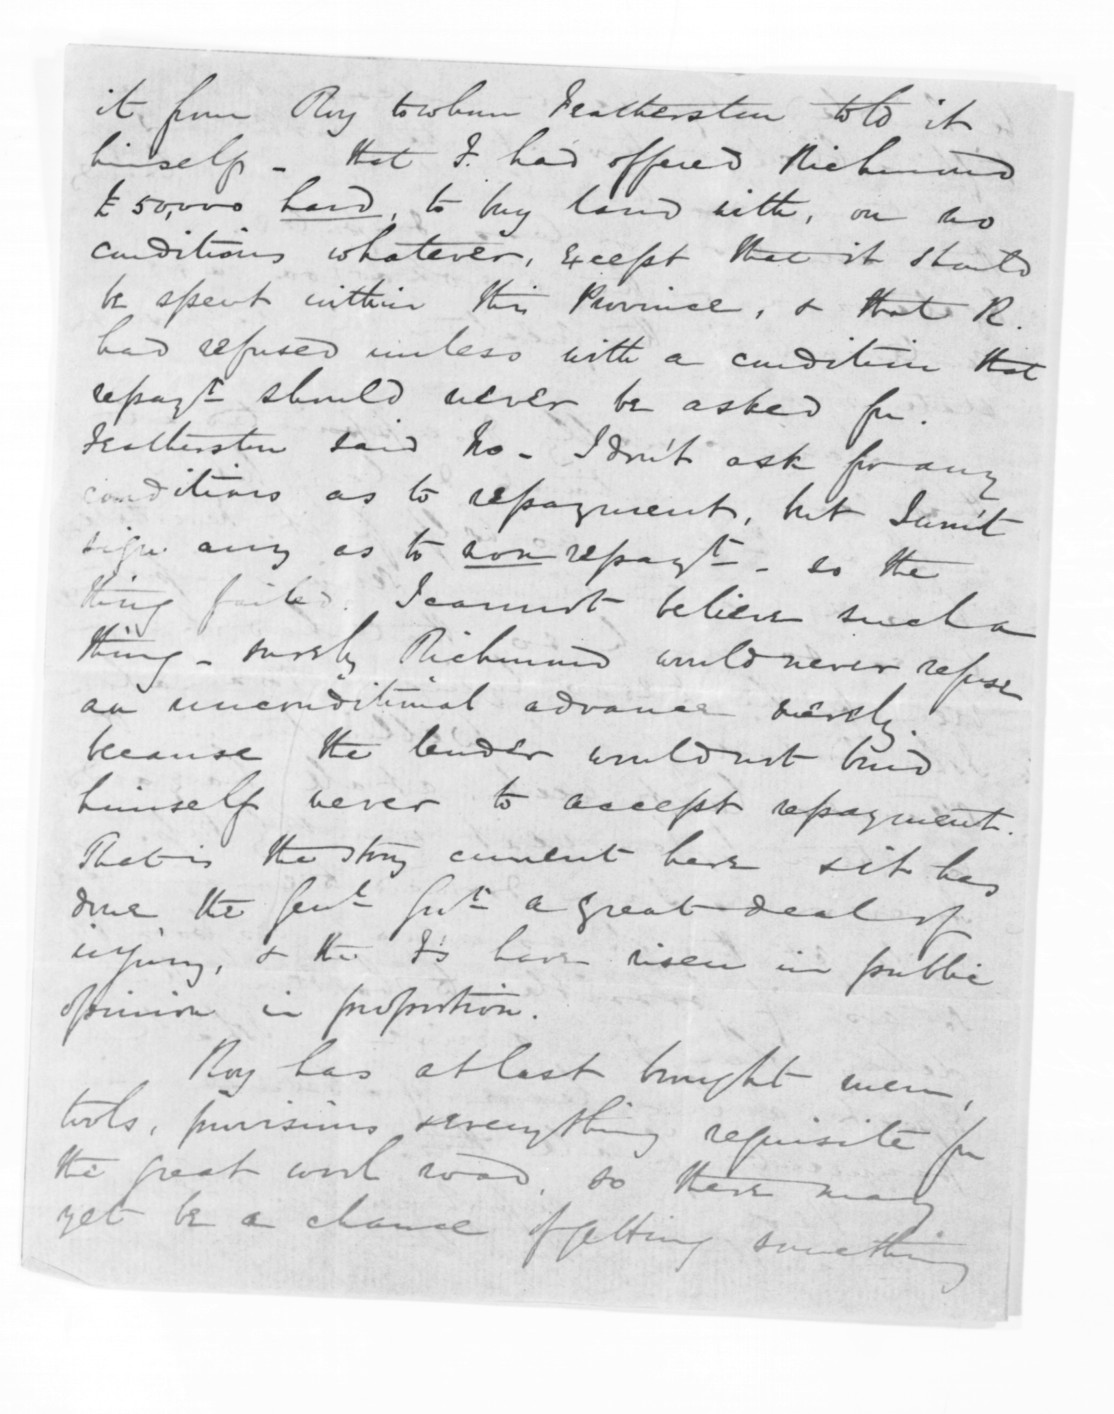 it from Roy to whom Featherston told it
himself - that F. had offered Richmond
£50,000 hard, to buy land with, on no
conditions whatever, except that it should
be spent within this Province, & that R.
had refused unless with a condition that
repayt should never be asked for.
Featherston said No - I don't ask for any
conditions as to repayment, but I won't
sign any as to non repayt - so the
thing failed. I cannot believe such a
thing - surely Richmond would never refuse
an unconditional advance merely
because the lender would not bind
himself never to accept repayment.
That is the story current here & it has
done the Genl Govt a great deal of
injury, & the F's have risen in public
opinion in proportion.
Roy has at last brought men,
tools, provisions & everything requisite for
the great work road, so there may
yet be a chance of getting something